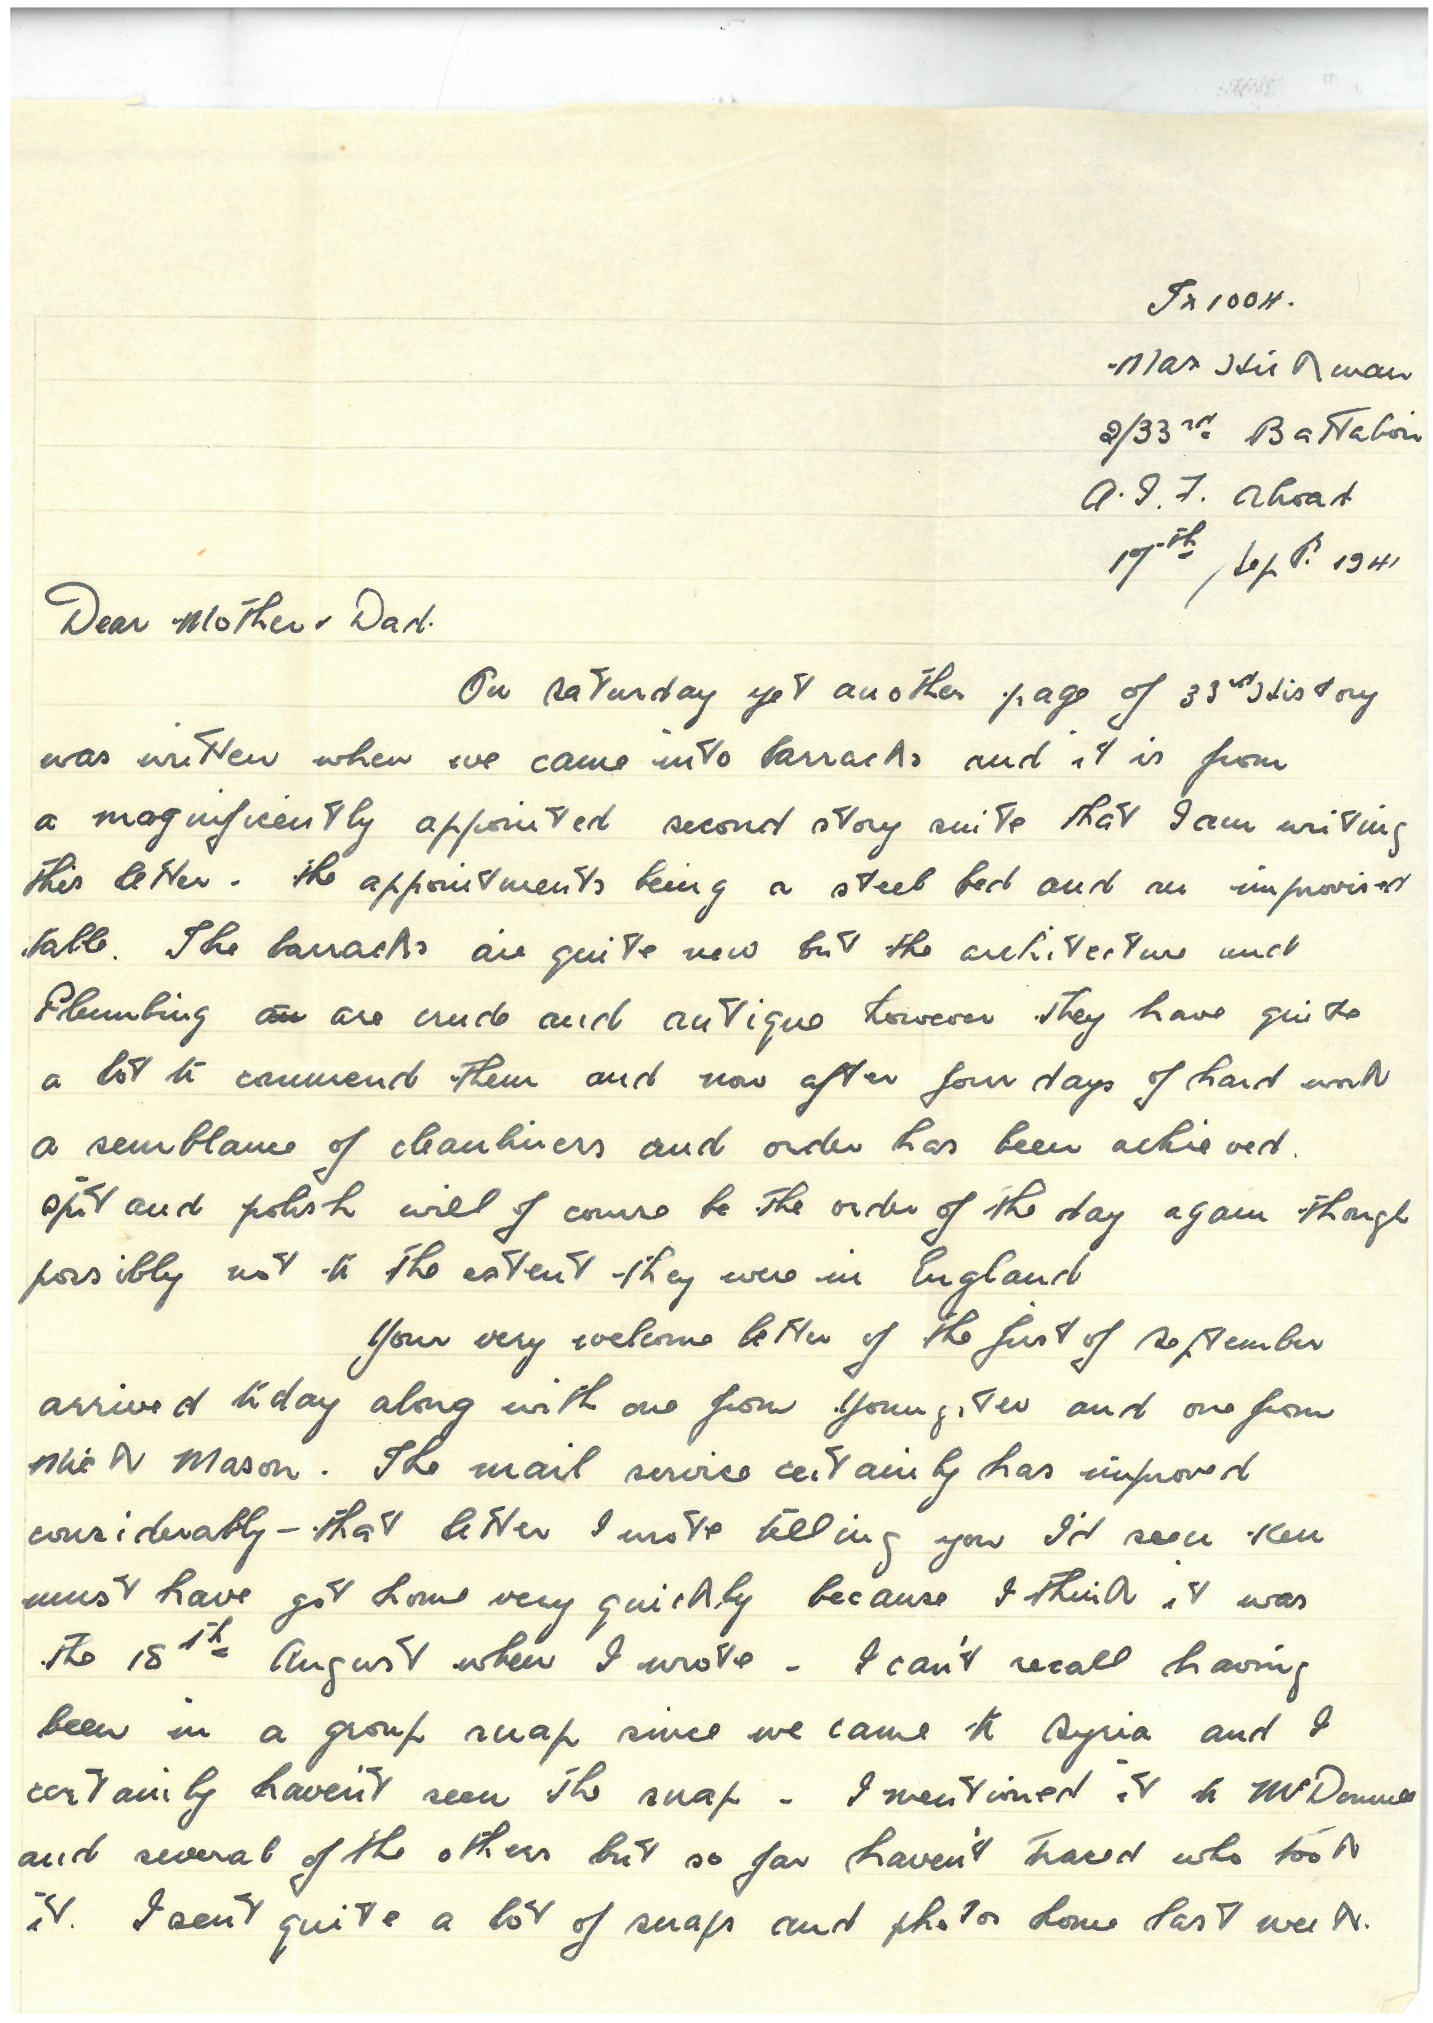 Tx 1004.
Max Hickman
2/33rd Battalion
A.I.F. Abroad
17th Sept. 1941
Dear Mother & Dad.
On Saturday yet another page of 33rd History
was written when we came into barracks and it is from
a magnificently appointed second story suite that I am writing
this letter - the appointments being a steel bed and an improvised
table. The barracks are quite new but the architecture and
Plumbing are crude and antique however they have quite
a lot to commend them and now after four days of hard work
a semblance of cleanliness and order has been achieved.
Spit and polish will of course be the order of the day again though
possibly not to the extent they were in England
Your very welcome letter of the first of September
arrived today along with one from Youngster and one from
Mick Mason. The mail service certainly has improved
considerably - that letter I wrote telling you I'd seen Ken
must have got home very quickly because I think it was
the 18th August when I wrote - I can't recall having
been in a group snap since we came to Syria and I
certainly haven't seen the snap - I mentioned it to
and several of the others but so far haven't traced who took
it. I sent quite a lot of snaps and photos home last week.